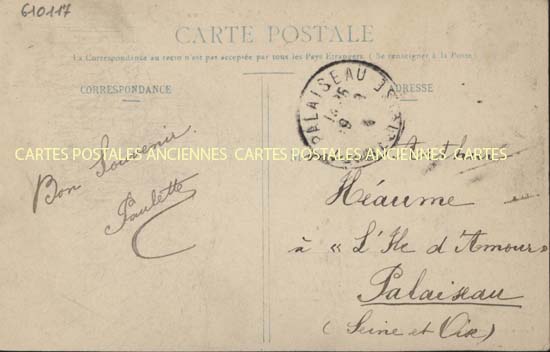 610117
CARTE POSTALE
La Correspondance au recto n'est pas acceptée par tous les Pays Etrangers. (Se renseigner à la Poste)
CORRESPONDANCE
ADRESSE
PALAISEAU
CARTES POSTALES ANCIENNES CARTES POSTALES ANCIENNES
Bon Souvenir.
Paulette
Héaume
à « L'Ile d'Amour »
Palaiseau
(Seine et Oise)